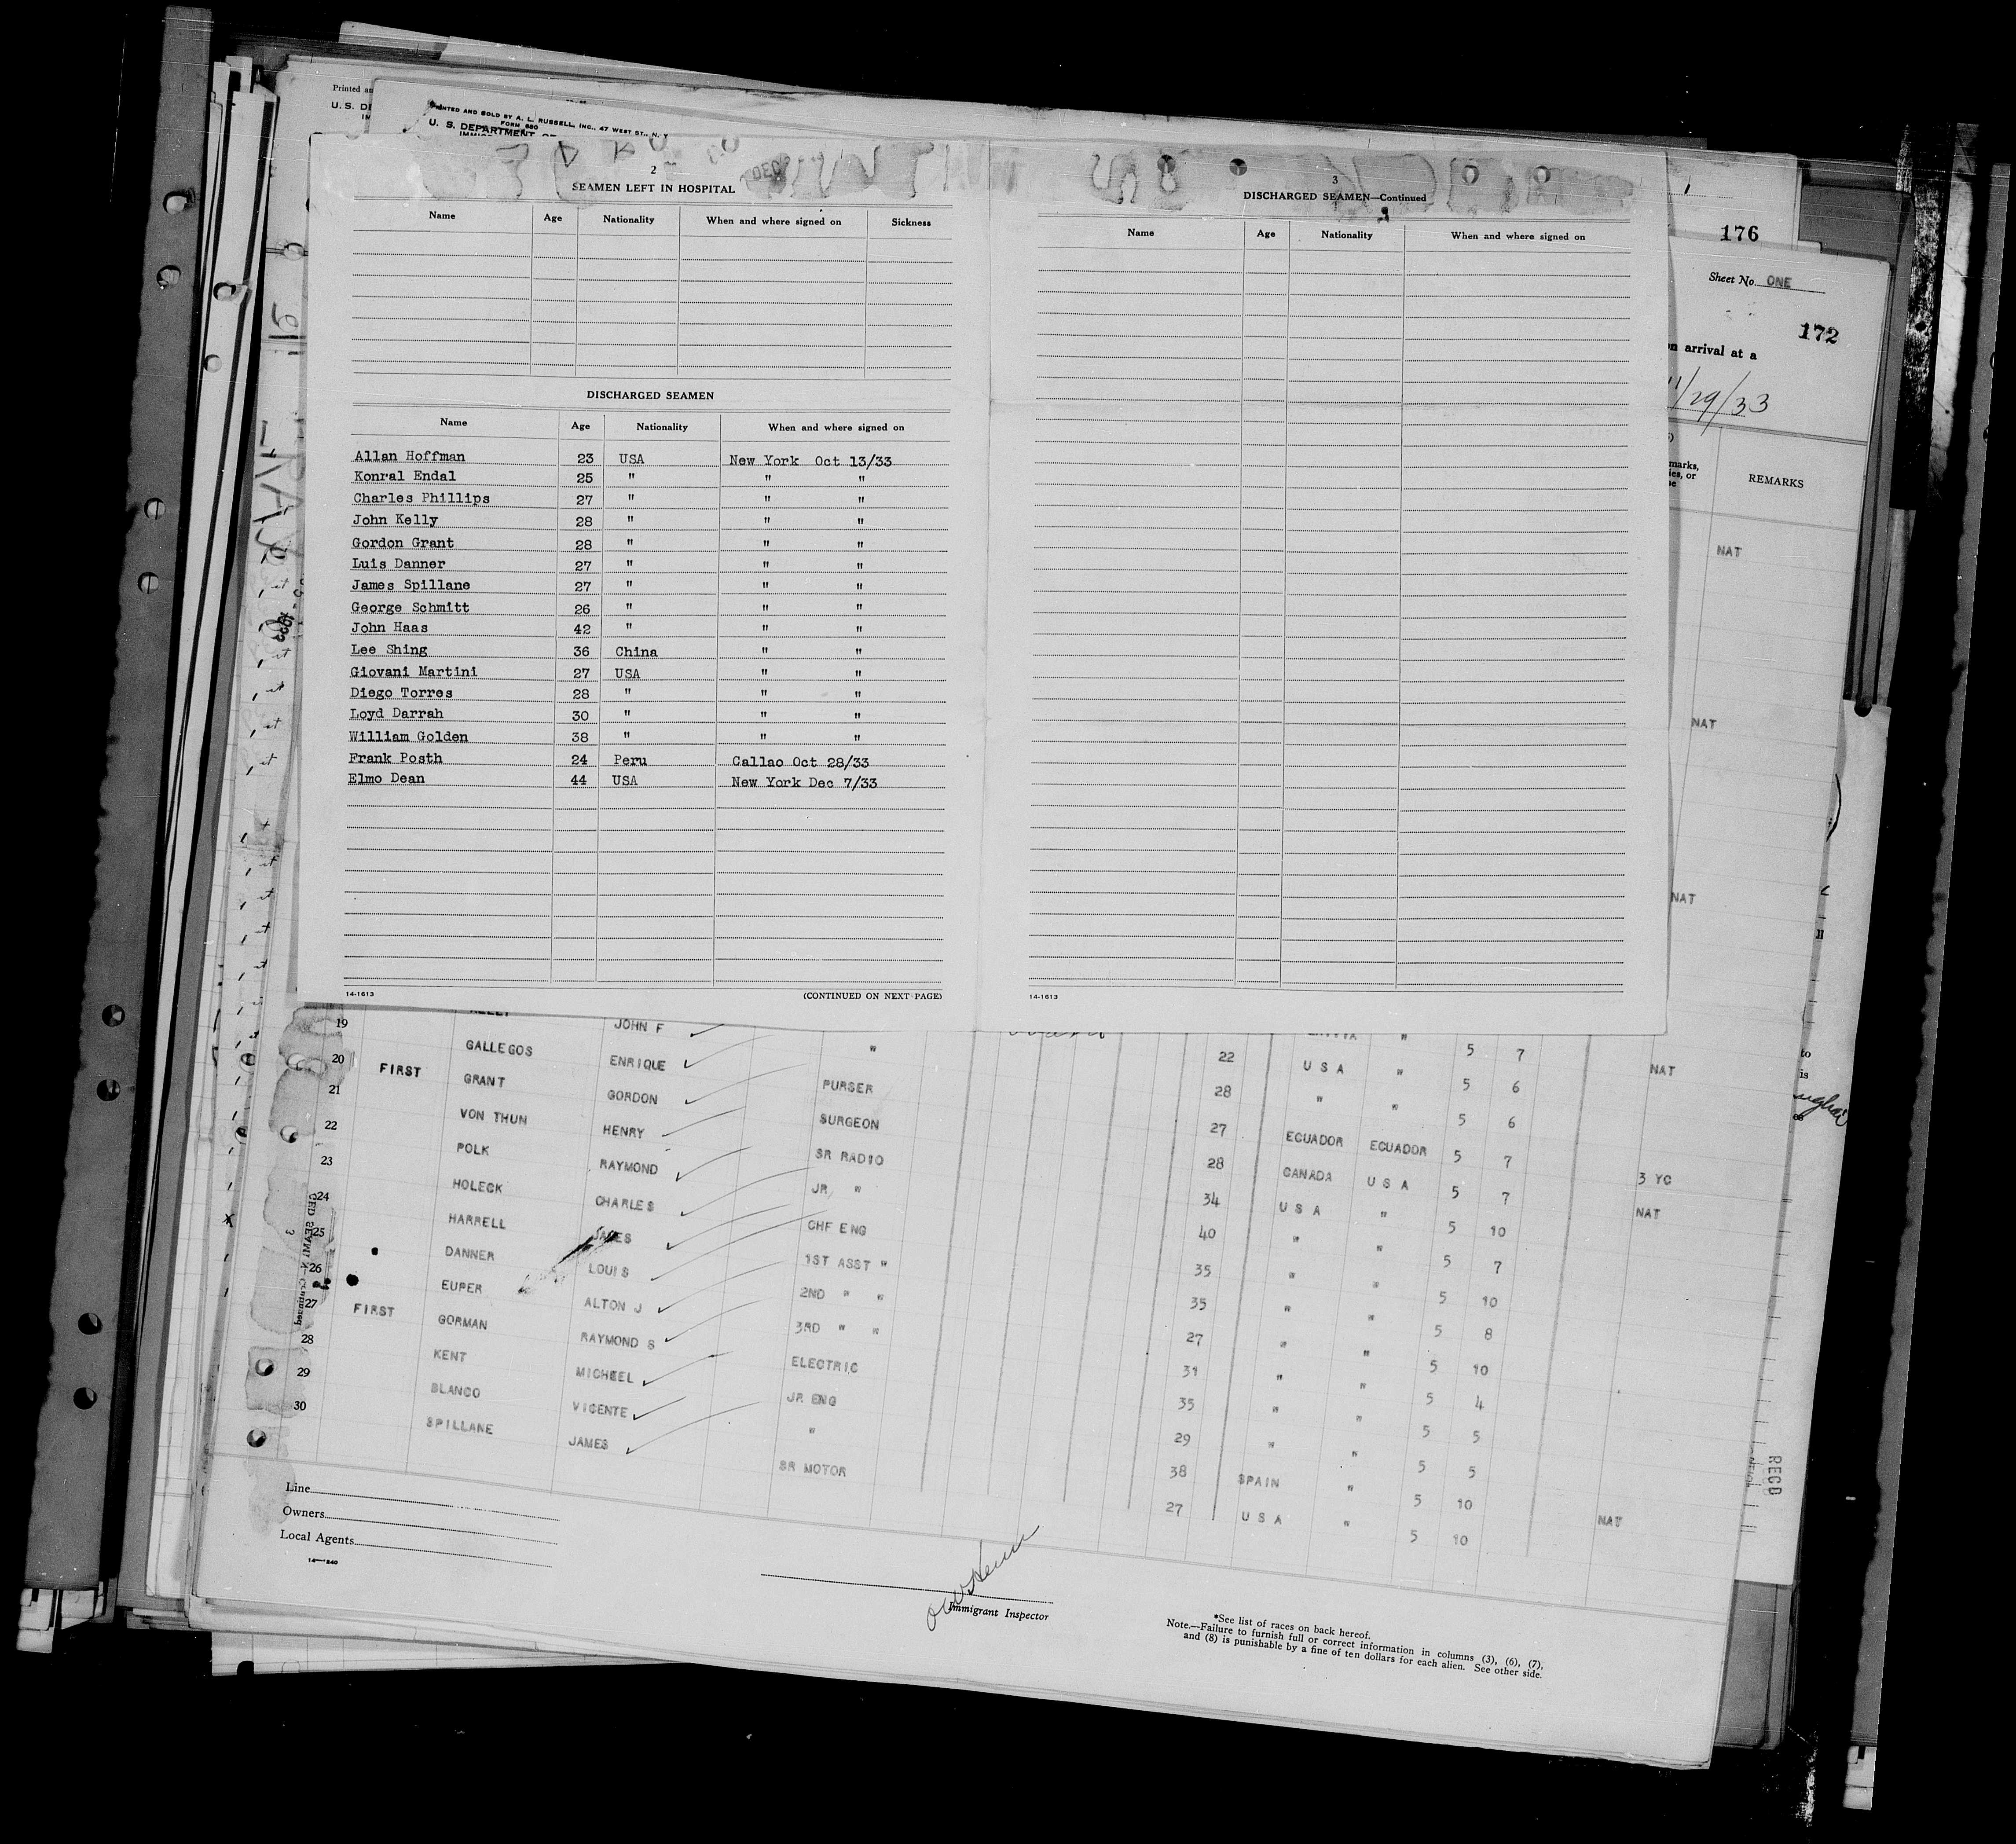 Printed an
U. S. DE
PRINTED AND SOLD BY A. L. RUSSELL, INC., 47 WEST ST., N. Y
FORM 680
U. S. DEPARTMENT OF
2
SEAMEN LEFT IN HOSPITAL
Name Age Nationality When and where signed on Sickness
DISCHARGED SEAMEN
Name Age Nationality When and where signed on
Allan Hoffman 23 USA New York Oct 13/33
Konral Endal 25 " " "
Charles Phillips 27 " " "
John Kelly 28 " " "
Gordon Grant 28 " " "
Luis Danner 27 " " "
James Spillane 27 " " "
George Schmitt 26 " " "
John Haas 42 " " "
Lee Shing 36 China " "
Giovani Martini 27 USA " "
Diego Torres 28 " " "
Loyd Darrah 30 " " "
William Golden 38 " " "
Frank Posth 24 Peru Callao Oct 28/33
Elmo Dean 44 USA New York Dec 7/33
14-1613 (CONTINUED ON NEXT PAGE)
3
DISCHARGED SEAMEN—Continued
Name Age Nationality When and where signed on
14-1613
176
Sheet No. ONE
172
on arrival at a
11/29/33
marks,
REMARKS
NAT
NAT
NAT
19 JOHN F "
20 GALLEGOS ENRIQUE " 22 U S A " 5 7 NAT
21 FIRST GRANT GORDON PURSER 28 " " 5 6
22 VON THUN HENRY SURGEON 27 ECUADOR ECUADOR 5 6
23 POLK RAYMOND SR RADIO 28 CANADA U S A 5 7 3 YC
24 HOLECK CHARLES JR " 34 U S A " 5 7 NAT
25 HARRELL JAMES CHF ENG 40 " " 5 10
26 DANNER LOUIS 1ST ASST " 35 " " 5 7
27 EUPER ALTON J 2ND " " 35 " " 5 10
28 FIRST GORMAN RAYMOND S 3RD " " 27 " " 5 8
29 KENT MICHEEL ELECTRIC 31 " " 5 10
30 BLANCO VICENTE JR ENG 35 " " 5 4
SPILLANE JAMES " 29 " " 5 5
SR MOTOR 38 SPAIN " 5 5
27 U S A " 5 10 NAT
5 10
Line
Owners
Local Agents
14—1240
Immigrant Inspector
*See list of races on back hereof.
Note.—Failure to furnish full or correct information in columns (3), (6), (7),
and (8) is punishable by a fine of ten dollars for each alien. See other side.
RECD